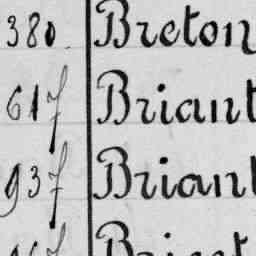 380. Breton
617 Briant
937 Briant